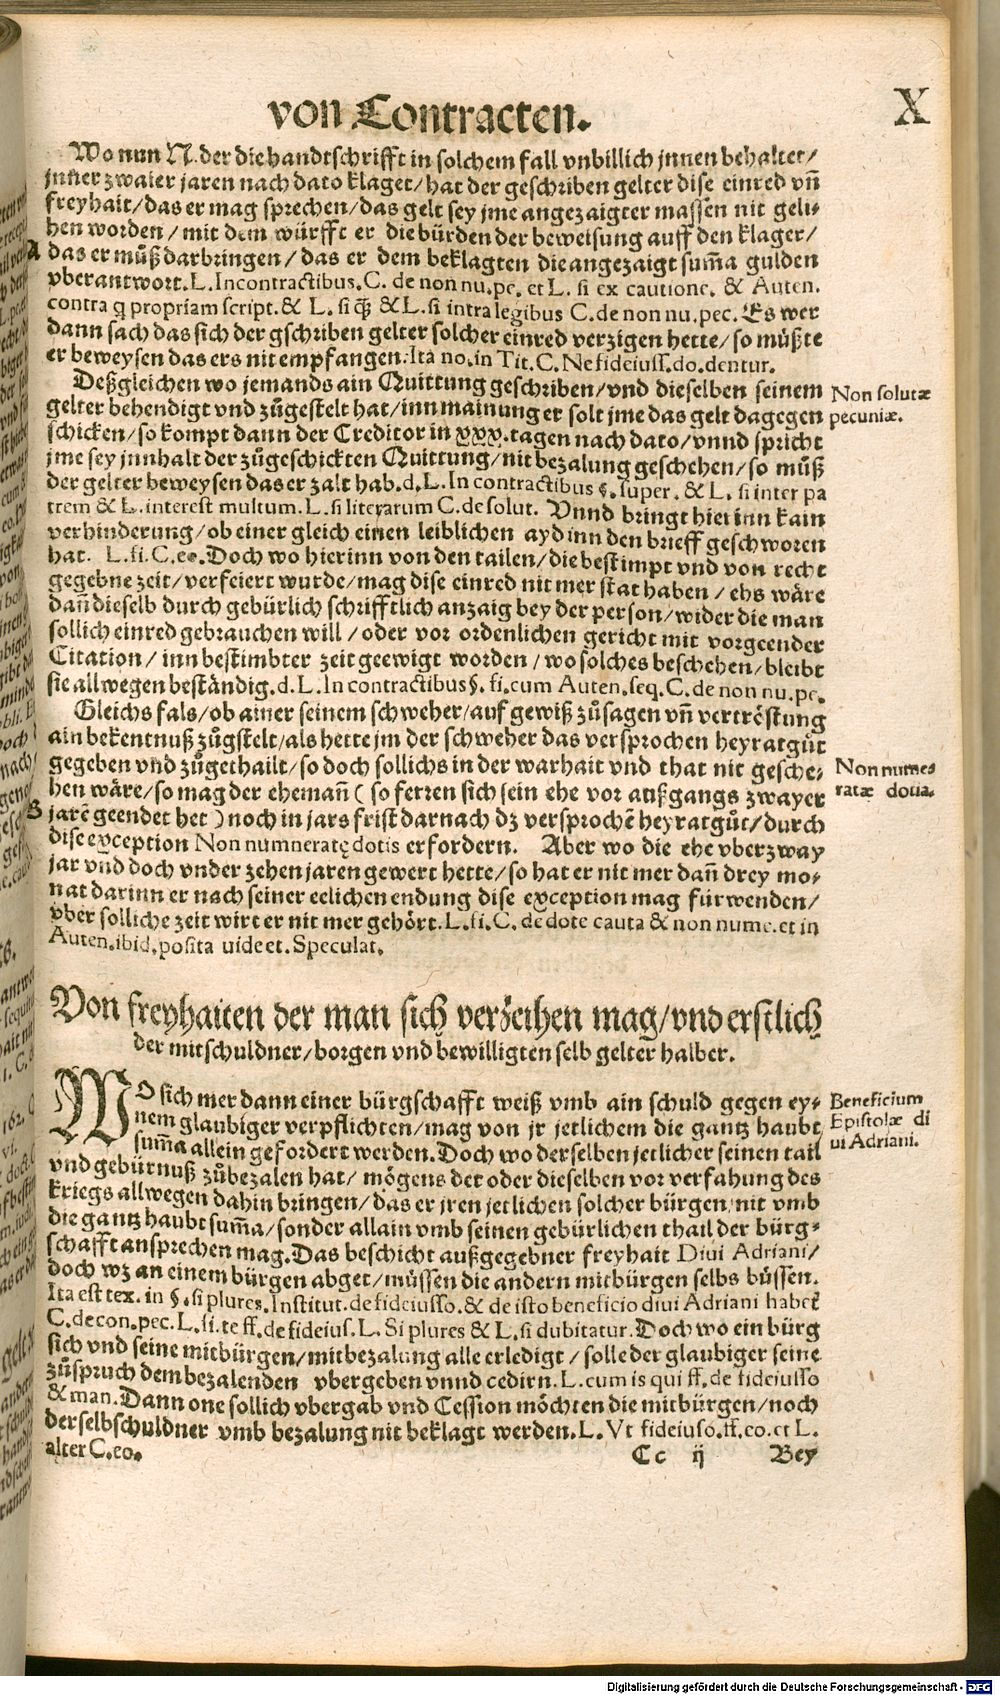 von Contracten.
X
Wo nun N. der die handtschrifft in solchem fall vnbillich jnnen behaltet/
jnner zwaier jaren nach dato klaget/hat der geschriben gelter dise einred vn̄
freyhait/das er mag sprechen/das gelt sey jme angezaigter massen nit geli-
hen worden/mit dem würfft er die bürden der beweisung auff den klager/
A
das er můß darbringen/das er dem beklagten die angezaigt sum̄a gulden
vberantwort. L. In contractibus. C. de non nu. pe. et L. si ex cautione. & Auten.
contra q propriam script. & L. si & L. si intra legibus C. de non nu. pec. Es wer
dann sach das sich der gschriben gelter solcher einred verzigen hette/so müßte
er beweysen das ers nit empfangen. Ita no. in Tit. C. Ne fideiuss. do. dentur.
Deßgleichen wo jemands ain Quittung geschriben/vnd dieselben seinem
Non solutæ
gelter behendigt vnd zůgestelt hat/inn mainung er solt jme das gelt dagegen
pecuniæ.
schicken/so kompt dann der Creditor in xxx. tagen nach dato/vnnd spricht
jme sey jnnhalt der zůgeschickten Quittung/nit bezalung geschehen/so můß
der gelter beweysen das er zalt hab. d. L. In contractibus §. super. & L. si inter pa
trem & L. interest multum. L. si literarum C. de solut. Vnnd bringt hierinn kain
verhinderung/ob einer gleich einen leiblichen ayd inn den brieff geschworen
hat. L. fi. C. eo. Doch wo hierinn von den tailen/die bestimpt vnd von recht
gegebne zeit/verfeiert wurde/mag dise einred nit mer stat haben/ehs wäre
dan̄ dieselb durch gebürlich schrifftlich anzaig bey der person/wider die man
sollich einred gebrauchen will/oder vor ordenlichen gericht mit vorgeender
Citation/inn bestimbter zeit geewigt worden/wo solches beschehen/bleibt
sie allwegen beständig. d. L. In contractibus §. fi. cum Auten. seq. C. de non nu. pe.
Gleichs fals/ob ainer seinem schweher/auf gewiß zůsagen vn̄ vertröstung
ain bekentnuß zůgstelt/als hette jm der schweher das versprochen heyratgůt
gegeben vnd zůgethailt/so doch sollichs in der warhait vnd that nit gesche-
Non nume-
hen wäre/so mag der eheman̄ (so ferren sich sein ehe vor außgangs zwayer
ratæ dotis.
B
jarē geendet het) noch in jars frist darnach dz versprochē heyratgůt/durch
dise exception Non numneratę dotis erfordern. Aber wo die ehe vber zway
jar vnd doch vnder zehen jaren gewert hette/so hat er nit mer dan̄ drey mo-
nat darinn er nach seiner eelichen endung dise exception mag fürwenden/
vber solliche zeit wirt er nit mer gehört. L. fi. C. de dote cauta & non nume. et in
Auten. ibid. posita uide et. Speculat.
Von freyhaiten der man sich verzeihen mag/vnd erstlich
der mitschuldner/borgen vnd bewilligten selb gelter halber.
WO sich mer dann einer bürgschafft weiß vmb ain schuld gegen ey-
Beneficium
nem glaubiger verpflichten/mag von jr jetlichem die gantz haubt
Epistolæ di
sum̄a allein gefordert werden. Doch wo derselben jetlicher seinen tail
ui Adriani.
vnd gebürnuß zůbezalen hat/mögens der oder dieselben vor verfahung des
kriegs allwegen dahin bringen/das er jren jetlichen solcher bürgen/nit vmb
die gantz haubt sum̄a/sonder allain vmb seinen gebürlichen thail der bürg-
schafft ansprechen mag. Das beschicht außgegebner freyhait Diui Adriani/
doch wz an einem bürgen abget/müssen die andern mitbürgen selbs büssen.
Ita est tex. in §. si plures. Institut. de fideiusso. & de isto beneficio diui Adriani habet
C. de con. pec. L. fi. te ff. de fideius. L. Si plures & L. si dubitatur. Doch wo ein bürg
sich vnd seine mitbürgen/mitbezalung alle erledigt/solle der glaubiger seine
zůspruch dem bezalenden vbergeben vnnd cedirn. L. cum is qui ff. de fideiusso
& man. Dann one sollich vbergab vnd Cession möchten die mitbürgen/noch
der selbschuldner vmb bezalung nit beklagt werden. L. Vt fideiuso. ff. eo. et L.
alter C. eo.
Cc ij
Bey
Digitalisierung gefördert durch die Deutsche Forschungsgemeinschaft - DFG